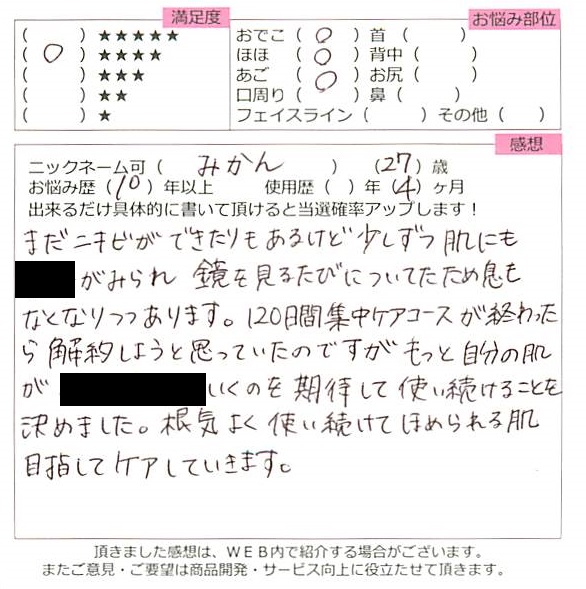 満足度
お悩み部位
( ) ★★★★★
( ○ ) ★★★★
( ) ★★★
( ) ★★
( ) ★
おでこ ( ○ ) 首 ( )
ほほ ( ○ ) 背中 ( )
あご ( ○ ) お尻 ( )
口周り ( ) 鼻 ( )
フェイスライン ( ) その他 ( )
感想
ニックネーム可 ( みかん ) (27) 歳
お悩み歴 (10) 年以上 使用歴 ( ) 年 (4) ヶ月
出来るだけ具体的に書いて頂けると当選確率アップします！
まだニキビができたりもあるけど少しずつ肌にも
がみられ 鏡を見るたびについてたため息も
なくなりつつあります。120日間集中ケアコースが終わった
ら解約しようと思っていたのですがもっと自分の肌
が いくのを期待して使い続けることを
決めました。根気よく使い続けてほめられる肌
目指してケアしていきます。
頂きました感想は、ＷＥＢ内で紹介する場合がございます。
またご意見・ご要望は商品開発・サービス向上に役立たせて頂きます。